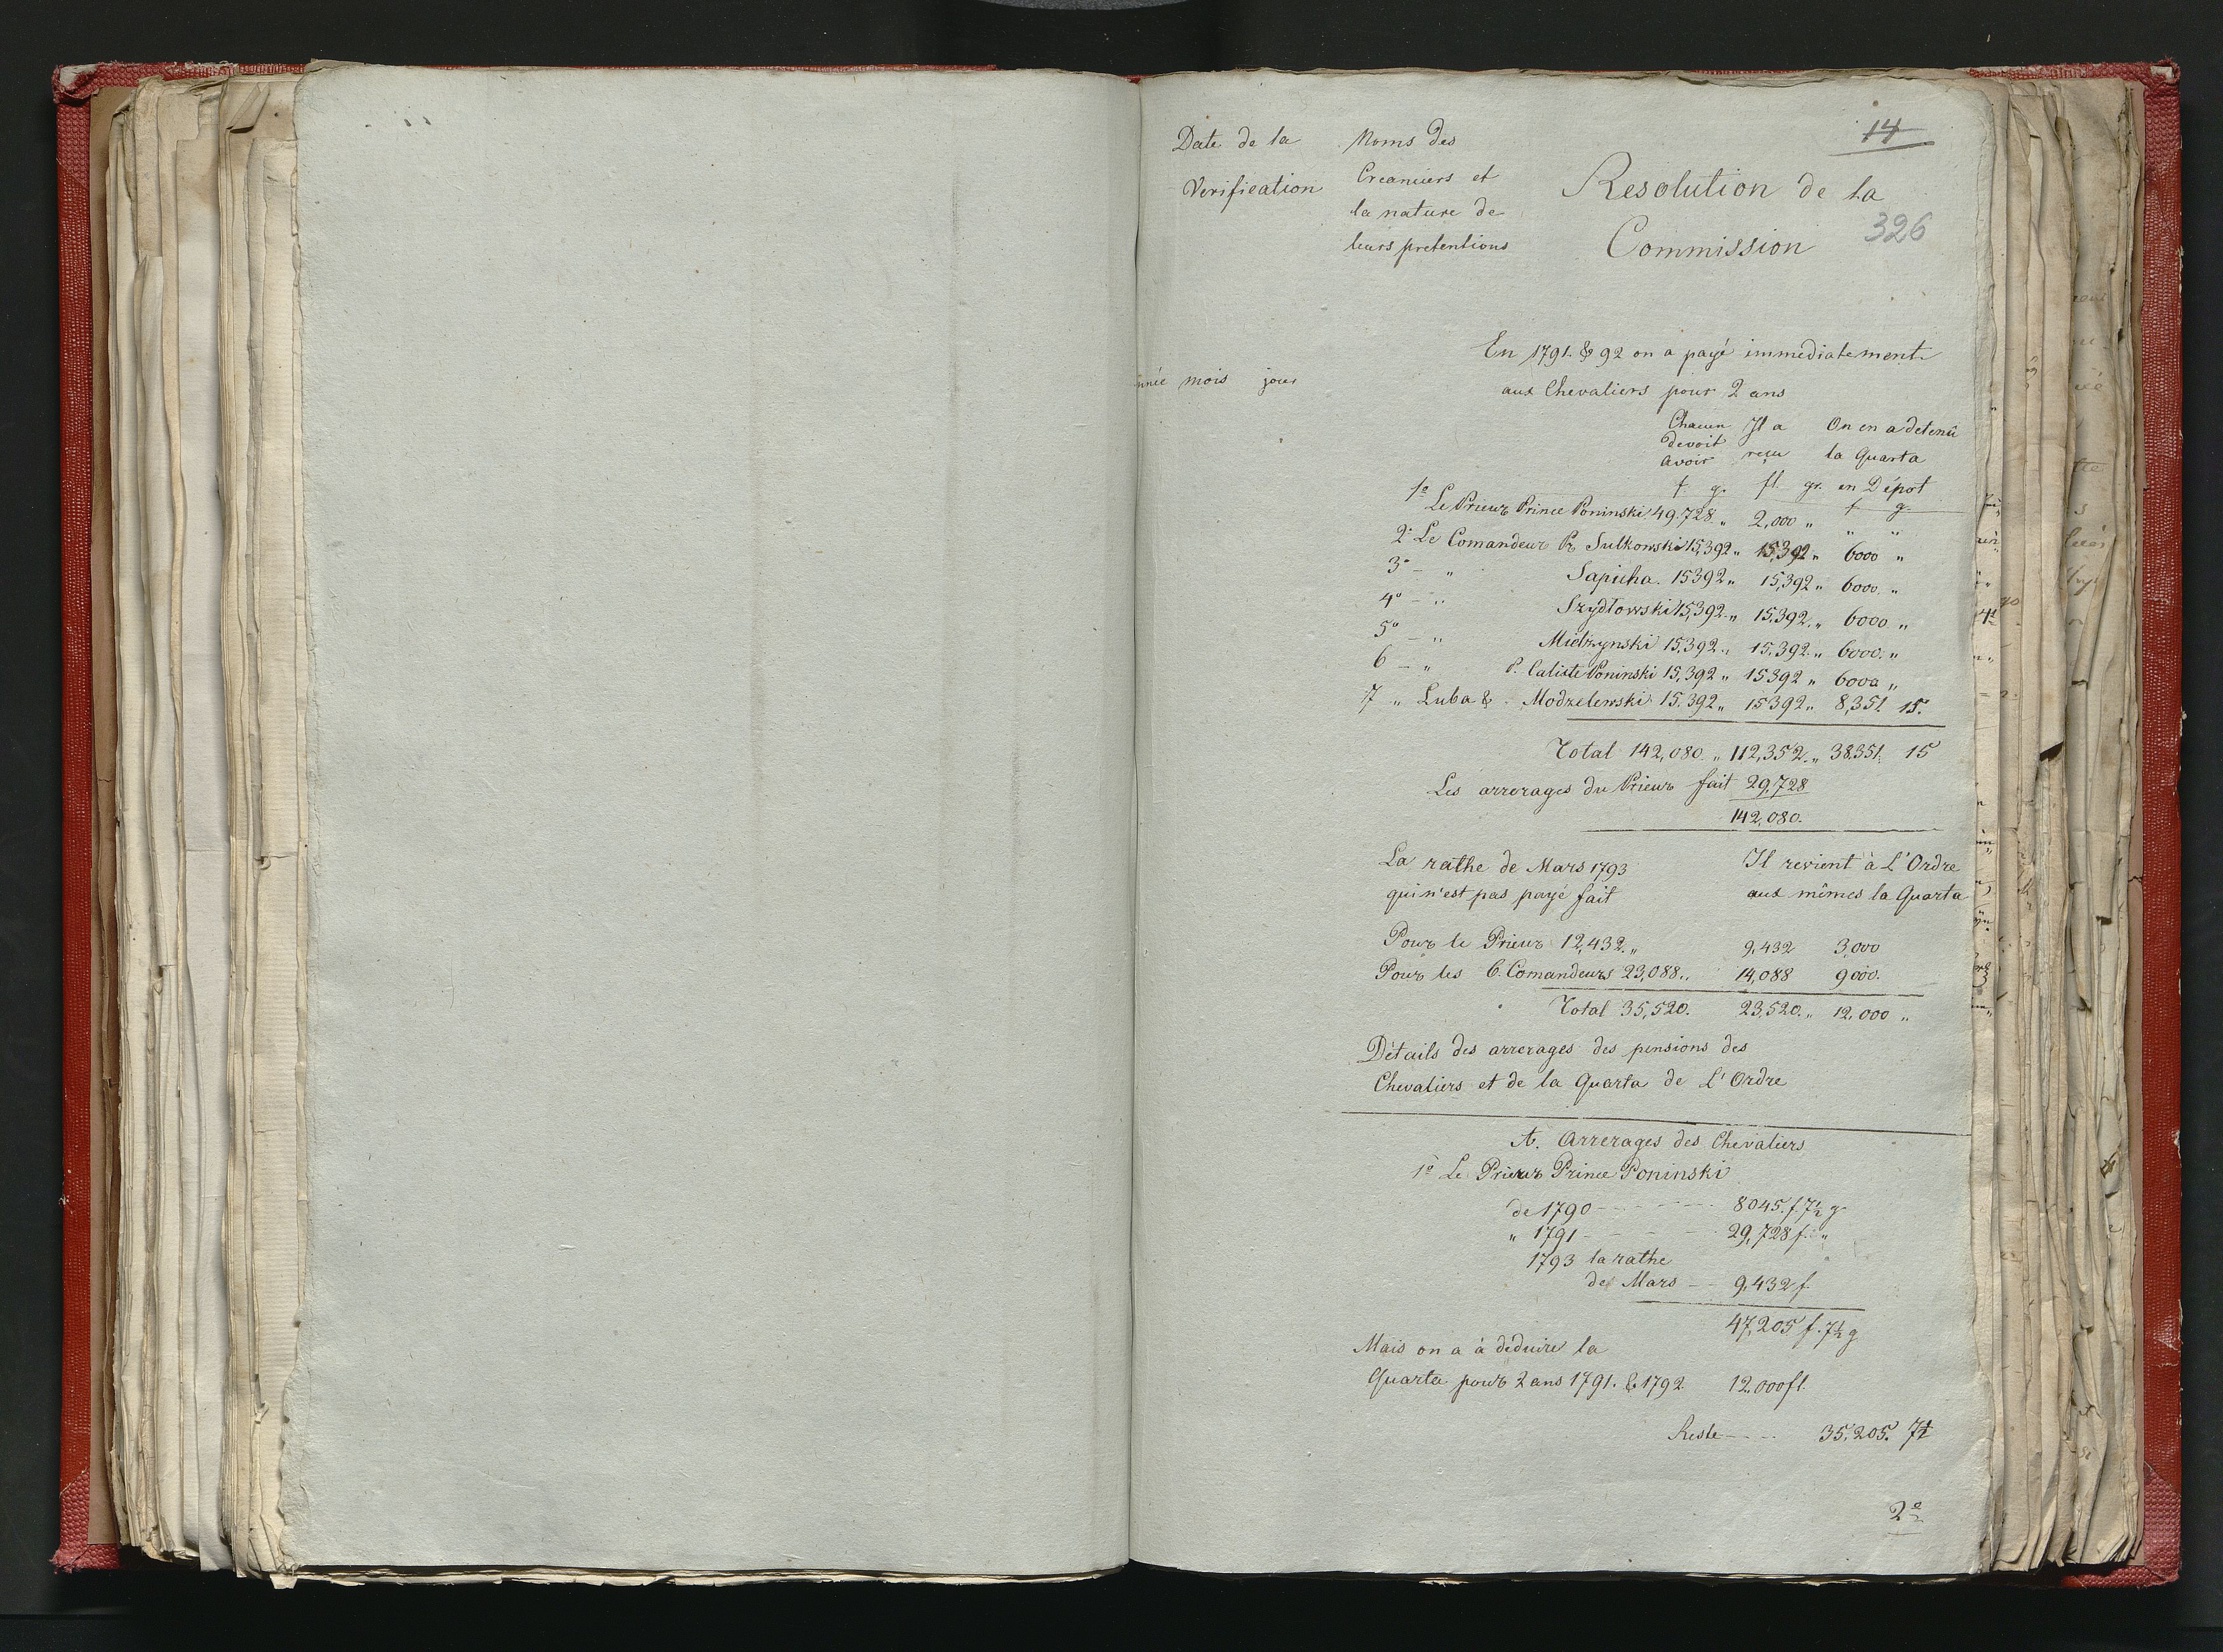 14
Date de la
Verification
Noms des
Creanciers et
la nature de
leurs pretentions
Resolution de la
Commission
326
année mois jour
En 1791. & 92 on a payé immediatement
aux Chevaliers pour 2 ans
Chacun Il a On en a detenû
devoit
avoir reçu la Quarta
f. g. fl. gr. en Dépot
f g.
1º Le Prieur Prince Poninski 49.728 „ 2,000 „ „ „
2º Le Comandeur Pr Sulkowski 15,392 „ 15,392 „ 6000 „
3º – „ Sapieha. 15392 „ 15,392 „ 6000. „
4º – „ Szydłowski 15,392 „ 15,392. „ 6000 „
5º – „ Mielzynski 15,392 „ 15,392. „ 6000. „
6 – „ P. Calixte Poninski 15,392 „ 15392 „ 6000 „
7 „ Luba & Modzelewski 15,392 „ 15392 „ 8,351. 15.
Total 142,080. „ 112,352. „ 38351. 15
Les arrerages du Prieur fait 29,728
142,080.
La rathe de Mars 1793
qui n'est pas payé fait
Il revient à L'Ordre
aux mêmes la Quarta
Pour le Prieur 12,432. „ 9,432 3,000
Pour les 6. Comandeurs 23,088. „ 14,088 9000.
Total 35,520. 23,520. „ 12,000 „
Détails des arrerages des pensions des
Chevaliers et de la Quarta de L'Ordre
A. Arrerages des Chevaliers
1º Le Prieur Prince Poninski
de 1790 - - - - - - 8045. f. 7½ g.
„ 1791 - - - - - 29,728 f. „
1793 la rathe
de Mars - - 9,432 f.
47,205 f. 7½ g
Mais on a à déduire la
Quarta pour 2 ans 1791. & 1792 12.000 fl.
Reste - - - - 35,205. 7½
2º